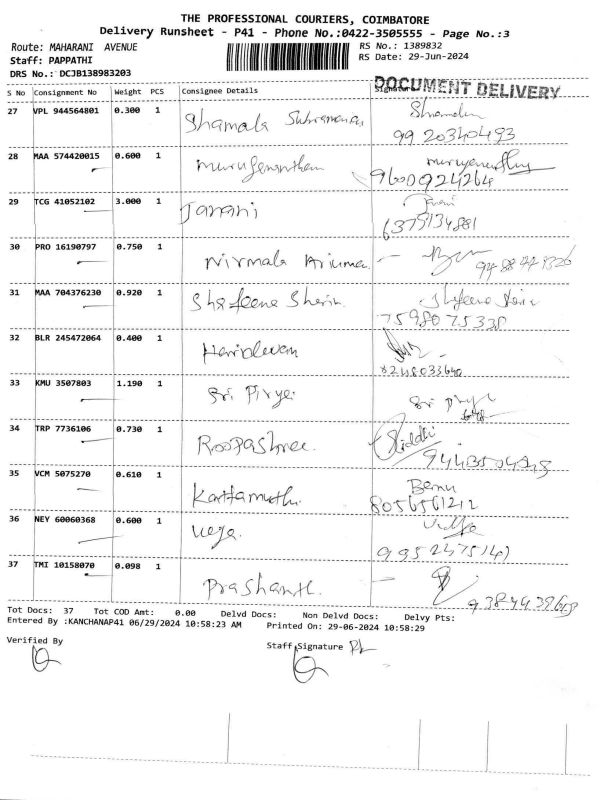 THE PROFESSIONAL COURIERS, COIMBATORE
Delivery Runsheet - P41 - Phone No.:0422-3505555 - Page No.:3
Route: MAHARANI AVENUE
RS No.: 1389832
Staff: PAPPATHI
RS Date: 29-Jun-2024
DRS No.: DCJB138983203
DOCUMENT DELIVERY
S No Consignment No Weight PCS Consignee Details Signature
27 VPL 944564801 0.300 1 Shamala Subramanian
99 20340493
28 MAA 574420015 0.600 1 Muruganantham
9600924264
29 TCG 41052102 3.000 1 Janani
6375134881
30 PRO 16190797 0.750 1 Nirmala
31 MAA 704376230 0.920 1 Shafeena Sherin
7598075338
32 BLR 245472064 0.400 1
8248033640
33 KMU 3507803 1.190 1 Sri Pirya
34 TRP 7736106 0.730 1 Roopashree Siddhi
35 VCM 5075270 0.610 1 Karthamuthu
8056561212
36 NEY 60060368 0.600 1
37 TMI 10158070 0.098 1 Prashanth
Tot Docs: 37 Tot COD Amt: 0.00 Delvd Docs: Non Delvd Docs: Delvy Pts:
Entered By :KANCHANAP41 06/29/2024 10:58:23 AM Printed On: 29-06-2024 10:58:29
Verified By
Staff Signature